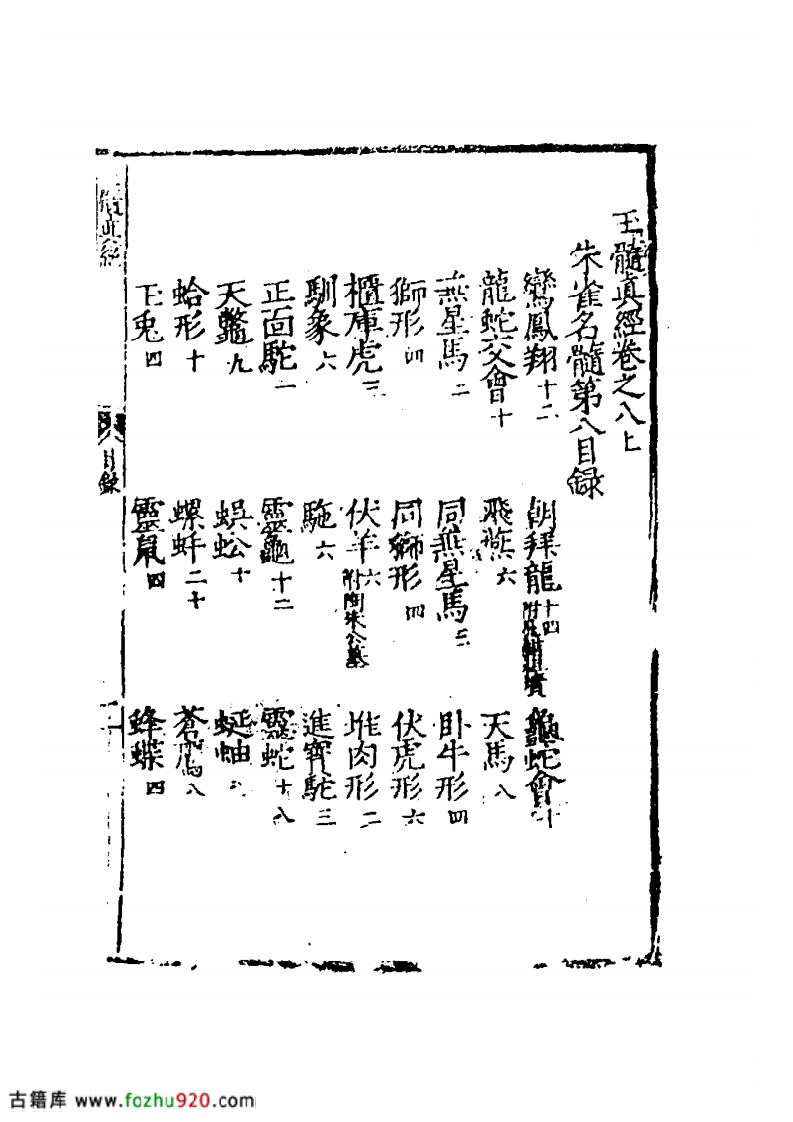 玉髓真經卷之八上
朱雀名髓第八目録
鸞鳳翔十二 朝拜龍十四 龜蛇會十
龍蛇交會十 飛燕六 天馬八
燕星馬二 同燕星馬三 卧牛形四
獅形四 同獅形四 伏虎形六
櫃庫虎三 伏羊六附陶朱公墓 堆肉形二
馴象六 駞六 進寶駝三
正面駝一 靈龜十二 靈蛇十八
天鼈九 蜈蚣十 蜒蚰
蛤形十 螺蚌二十 蒼鷹八
玉兎四 靈鼠四 蜂蝶四
髓真經
八 目録
古籍库 www.fozhu920.com